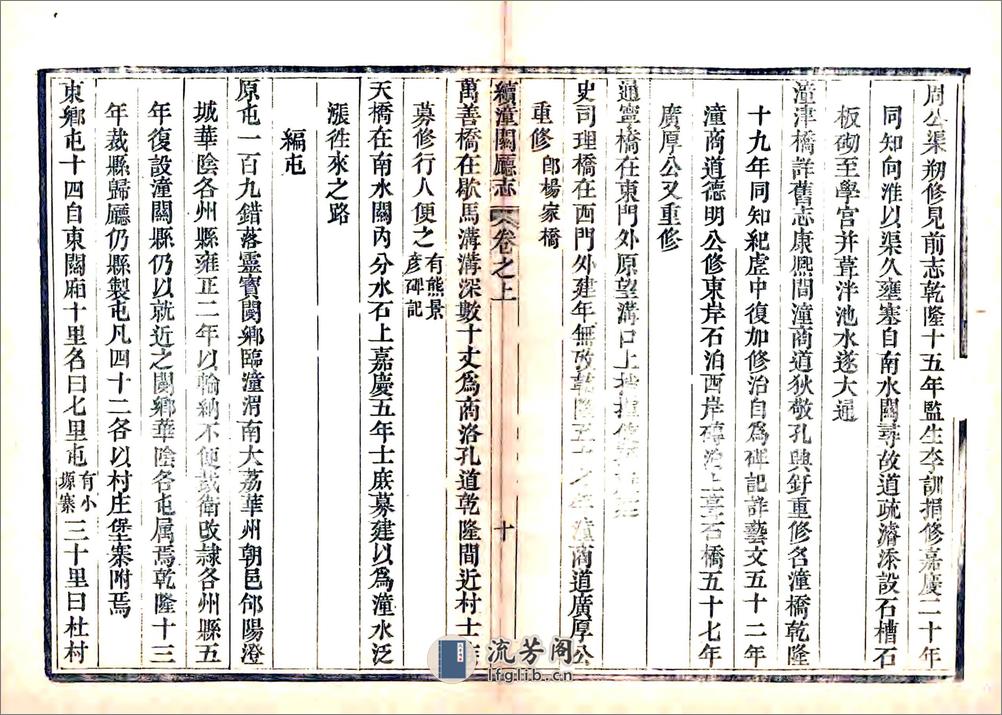 周公渠剏修見前志乾隆十五年監生李訓捐修嘉慶二十年
同知向淮以渠久壅塞自南水關尋故道疏濬添設石槽石
板砌至學宮并葺泮池水遂大通
潼津橋詳舊志康熙間潼商道狄敬孔興釪重修名潼橋乾隆
十九年同知紀虛中復加修治自爲碑記詳藝文五十二年
潼商道德明公修東岸石泊西岸磚泊上臺石橋五十七年
廣厚公又重修
通寧橋在東門外原望溝口上
史司理橋在西門外建年無攷乾隆五十七年潼商道廣厚公
重修 卽楊家橋
續潼關廳志 卷之上 十
萬善橋在歇馬溝溝深數十丈爲商洛孔道乾隆間近村士庶
募修行人便之 有熊景彥碑記
天橋在南水關內分水石上嘉慶五年士庶募建以爲潼水泛
漲徃來之路
編屯
原屯一百九錯落靈寶閿鄉臨潼渭南大荔華州朝邑郃陽澄
城華陰各州縣雍正二年以輸納不便裁衛改隸各州縣五
年復設潼關縣仍以就近之閿鄉華陰各屯屬焉乾隆十三
年裁縣歸廳仍縣製屯凡四十二各以村庄堡寨附焉
東鄉屯十四自東關廂十里名曰七里屯 有小塬寨 三十里曰杜村
流芳阁
lfglib.cn